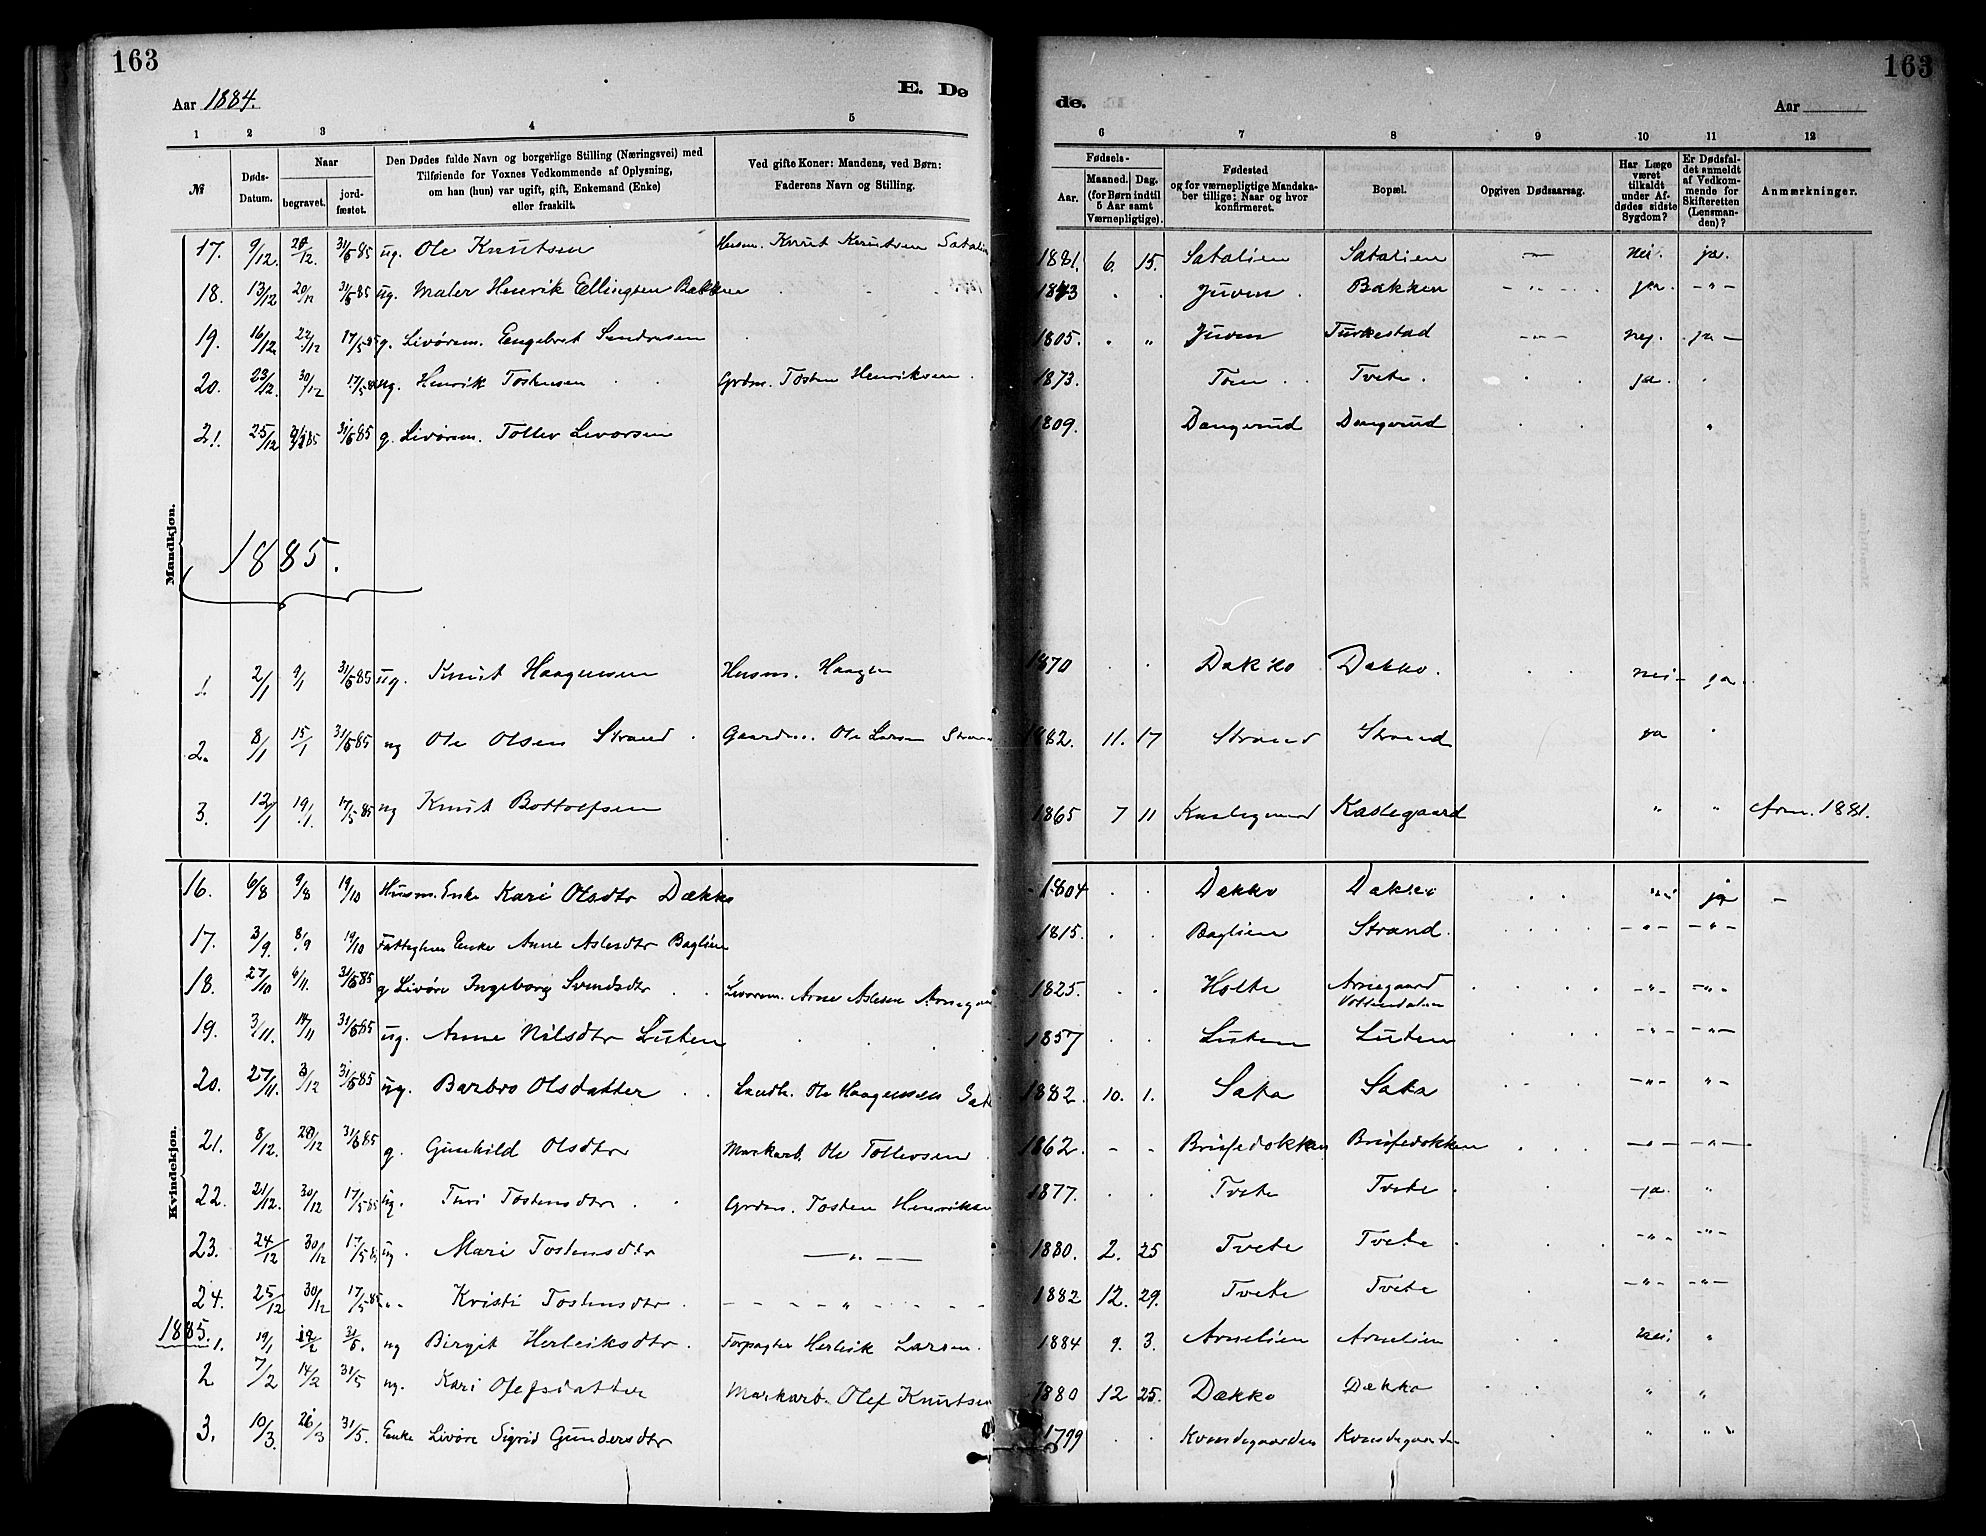 163
163
Aar 1884.
E. Dø
de.
Aar
1 2 3 4 5 6 7 8 9 10 11 12
№
Døds-Datum.
Naar
begravet.
jord-fæstet.
Den Dødes fulde Navn og borgerlige Stilling (Næringsvei) med
Tilføiende for Voxnes Vedkommende af Oplysning,
om han (hun) var ugift, gift, Enkemand (Enke)
eller fraskilt.
Ved gifte Koner: Mandens, ved Børn:
Faderens Navn og Stilling.
Fødsels-
Aar.
Maaned. Dag.
(for Børn indtil
5 Aar samt
Værnepligtige).
Fødested
og for værnepligtige Mandska-
ber tillige: Naar og hvor
konfirmeret.
Bopæl.
Opgiven Dødsaarsag.
Har Læge
været
tilkaldt
under Af-
dødes sidste
Sygdom?
Er Dødsfal-
det anmeldt
af Vedkom-
mende for
Skifteretten
(Lensman-
den)?
Anmærkninger.
Mandkjøn.
17. 9/12. 20/12. 31/5 85 ug. Ole Knutsen Husm. Knut Knutsen Satalien 1881. 6. 15. Satalien Satalien — nei. ja.
18. 13/12 20/12 31/5 85 ug. Maler Henrik Ellingsen Bakken 1843 Juven Bakken - " - ja - " -
19. 16/12 22/12 17/5 85 g. Livørsm. Engebret Sandresen 1805. " Juven Turkestad - " - nej. ja -
20. 23/12. 30/12 17/5 85 ug. Henrik Tostensen Grdm. Tosten Henriksen 1873. Toen Tvete ja
21. 25/12 31/5 85 g. Livørsm. Tollev Levorsen 1809. Dangerud Dangerud "
1885.
1. 2/1 9/1 31/5 85 ug. Knut Haagensen Husm. Haagen 1870 Dækko Dækko. nei - ja
2. 8/1 15/1 31/5 85 ug Ole Olsen Strand Gaardm. Ole Larsen Strand 1882. 11. 17 Strand Strand ja
3. 12/1 19/1. 17/5 85 ug Knut Bottolfsen 1865 7 11 Kaslegaard Kaslegaard " " 1881.
Kvindekjøn.
16. 6/8 9/8 19/10 Husm. Enke Kari Olsdtr Dækko 1804 Dækko Dækko nei ja -
17. 3/9. 8/9 19/10 Enke Anne Aslesdtr Baglien 1815. Baglien Strand. - " - - " -
18. 27/10 6/11. 31/5 85 g Livøre Ingeborg Svendsdtr Levorsm. Arne Aslesen Arnegaard 1825. Holte Arnegaard - " - - " -
19. 3/11. 14/11 31/5 85 ug. Anne Nilsdtr Luten 1857 Luten Luten - " - - " -
20. 27/11. 3/12 31/5 85 ug. Barbro Olsdatter Landh. Ole Haagensen Sata 1882. 10. 1. Sata Sata - " - " -
21. 8/12. 20/12 31/5 85 g. Gunhild Olsdtr Markarb. Ole Tollevsen 1862. - - Briskedokken Briskedokken - " - - " -
22. 21/12. 30/12 17/5 85 ug. Turi Tostensdtr Grdm. Tosten Henriksen 1877. Tvete Tvete ja. "
23. 24/12 30/12 17/5 85 ug. Mari Tostensdtr — " — 1880. 2. 25 Tvete Tvete - " - - " -
24. 25/12 30/12 17/5 85 " Kristi Tostensdtr - - - " - - - 1882 12. 29. Tvete Tvete - " - - " -
1885.
1. 19/1 12/2 31/5. ug Birgit Herleiksdtr Forpagter Herleik Larsen 1884 9. 3. Arnelien Arnelien nei "
2 7/2 14/2 31/5 ug. Kari Olefsdatter Markarb. Olef Knutsen 1880 12 25. Dækko Dækko " "
3. 10/3. 26/3 31/5. Enke Livøre Sigrid Gundersdtr 1799 Kvindegaarden Kvindegaarden " "